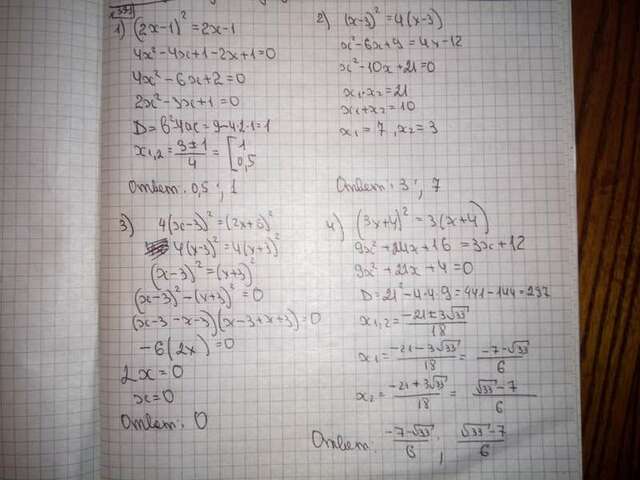 1) (2x-1)² = 2x-1
4x²-4x+1-2x+1=0
4x²-6x+2=0
2x²-3x+1=0
D=b²-4ac=9-4·2·1=1
Ответ: 0,5; 1
2) (x-3)²=4(x-3)
x²-6x+9=4x-12
x²-10x+21=0
x₁·x₂=21
x₁+x₂=10
x₁=7, x₂=3
Ответ: 3; 7
3) 4(x-3)²=(2x+6)²
4(x-3)²=4(x+3)²
(x-3)²=(x+3)²
(x-3)²-(x+3)²=0
(x-3-x-3)(x-3+x+3)=0
-6(2x)=0
2x=0
x=0
Ответ: 0
4) (3x+4)²=3(x+4)
9x²+24x+16=3x+12
9x²+21x+4=0
D=21²-4·4·9=441-144=297
x₁,₂=(-21±3√33)/18
x₁=(-21-3√33)/18=(-7-√33)/6
x₂=(-21+3√33)/18=(√33-7)/6
Ответ: (-7-√33)/6; (√33-7)/6